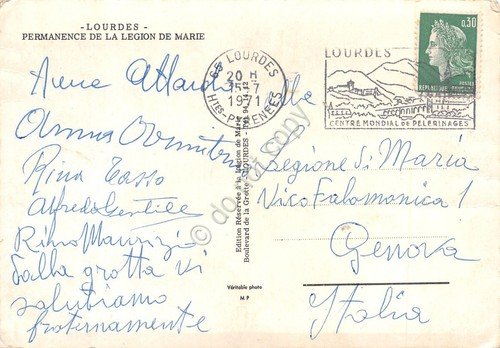 - LOURDES -
PERMANENCE DE LA LEGION DE MARIE
Anna
Rina Tasso
Alfredo Gentile
Rino Maurizio
Dalla grotta vi
salutiamo
fraternamente
Edition Réservée à la Légion de Marie
Boulevard de la Grotte - LOURDES - Tél.
Véritable photo
M P
65 LOURDES
20 H
15-7
1971
HTES-PYRENEES
LOURDES
CENTRE MONDIAL de PELERINAGES
0,30
POSTES
REPUBLIQUE FRANCAISE
Alla
Legione di Maria
Vico Falamonica 1
Genova
Italia
do not copy